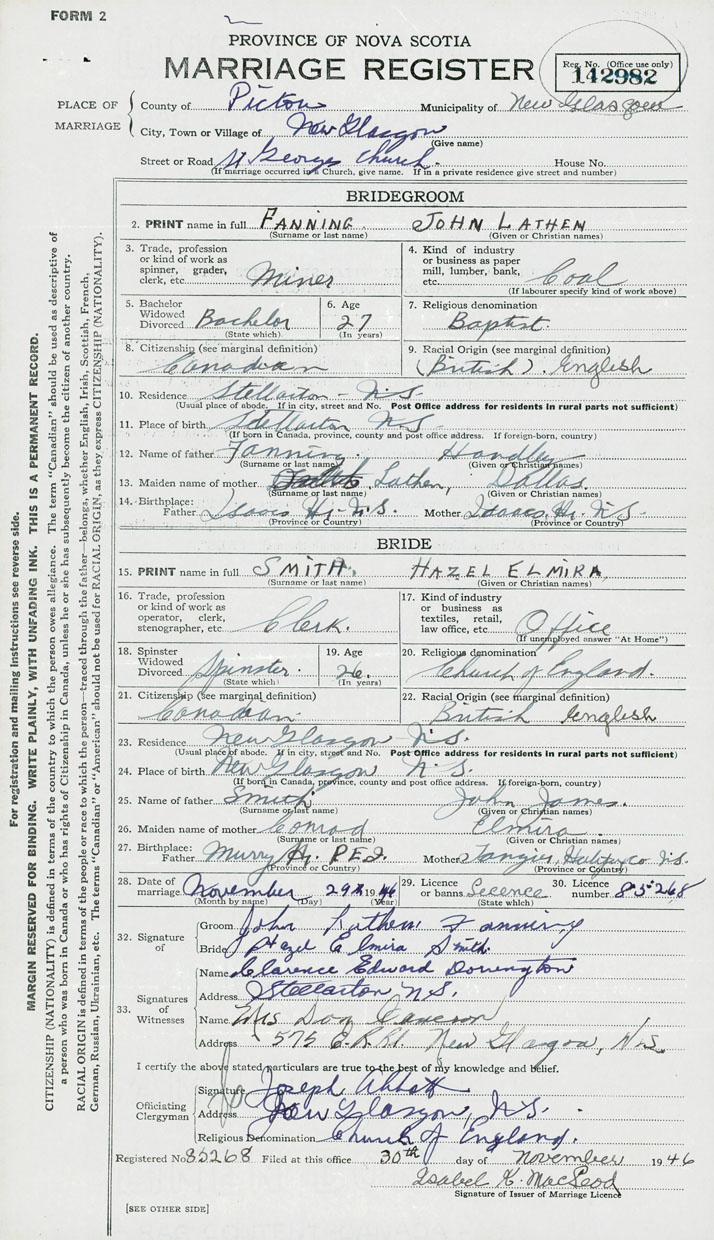 FORM 2
PROVINCE OF NOVA SCOTIA
MARRIAGE REGISTER
Reg. No. (Office use only)
142982
PLACE OF MARRIAGE
County of Pictou Municipality of New Glasgow
City, Town or Village of New Glasgow
(Give name)
Street or Road St Georges Church. House No.
(If marriage occurred in a Church, give name. If in a private residence give street and number)
BRIDEGROOM
2. PRINT name in full FANNING JOHN LATHEM
(Surname or last name) (Given or Christian names)
3. Trade, profession or kind of work as spinner, grader, clerk, etc. Miner
4. Kind of industry or business as paper mill, lumber, bank, etc. Coal
(If labourer specify kind of work above)
5. Bachelor Widowed Divorced Bachelor
(State which)
6. Age 27
(In years)
7. Religious denomination Baptist.
8. Citizenship (see marginal definition) Canadian
9. Racial Origin (see marginal definition) (British). English
10. Residence Stellarton - N.S.
(Usual place of abode. If in city, street and No. Post Office address for residents in rural parts not sufficient)
11. Place of birth Stellarton N.S.
(If born in Canada, province, county and post office address. If foreign-born, country)
12. Name of father Fanning. Handley
(Surname or last name) (Given or Christian names)
13. Maiden name of mother Lathem, Dallas.
(Surname or last name) (Given or Christian names)
14. Birthplace:
Father Isaacs Hr. N.S. Mother Isaacs Hr. N.S.
(Province or Country) (Province or Country)
BRIDE
15. PRINT name in full SMITH. HAZEL ELMIRA
(Surname or last name) (Given or Christian names)
16. Trade, profession or kind of work as operator, clerk, stenographer, etc. Clerk.
17. Kind of industry or business as textiles, retail, law office, etc. Office
(If unemployed answer "At Home")
18. Spinster Widowed Divorced Spinster.
(State which)
19. Age 26.
(In years)
20. Religious denomination Church of England.
21. Citizenship (see marginal definition) Canadian.
22. Racial Origin (see marginal definition) British English
23. Residence New Glasgow N.S.
(Usual place of abode. If in city, street and No. Post Office address for residents in rural parts not sufficient)
24. Place of birth New Glasgow N.S.
(If born in Canada, province, county and post office address. If foreign-born, country)
25. Name of father Smith John James.
(Surname or last name) (Given or Christian names)
26. Maiden name of mother Conrod Elmira
(Surname or last name) (Given or Christian names)
27. Birthplace:
Father Murry Hr. P.E.I. Mother Tangier, Halifax Co N.S.
(Province or Country) (Province or Country)
28. Date of marriage November 29th 1946
(Month by name) (Day) (Year)
29. Licence or banns Licence
(State which)
30. Licence number 85268
32. Signature of
Groom John Lathem Fanning
Bride Hazel Elmira Smith.
33. Signatures of Witnesses
Name Clarence Edward Dorrington
Address Stellarton N.S.
Name Mrs Don Cameron
Address 575 E.R.Rd. New Glasgow, N.S.
I certify the above stated particulars are true to the best of my knowledge and belief.
Officiating Clergyman
Signature Joseph Abbott
Address New Glasgow, N.S.
Religious Denomination Church of England.
Registered No 85268 Filed at this office 30th day of November 1946
Isabel K. MacLeod
Signature of Issuer of Marriage Licence
[SEE OTHER SIDE]
For registration and mailing instructions see reverse side.
MARGIN RESERVED FOR BINDING. WRITE PLAINLY, WITH UNFADING INK. THIS IS A PERMANENT RECORD.
CITIZENSHIP (NATIONALITY) is defined in terms of the country to which the person owes allegiance. The term "Canadian" should be used as descriptive of
a person who was born in Canada or who has rights of Citizenship in Canada, unless he or she has subsequently become the citizen of another country.
RACIAL ORIGIN is defined in terms of the people or race to which the person—traced through the father—belongs, whether English, Irish, Scottish, French,
German, Russian, Ukrainian, etc. The terms "Canadian" or "American" should not be used for RACIAL ORIGIN, as they express CITIZENSHIP (NATIONALITY).